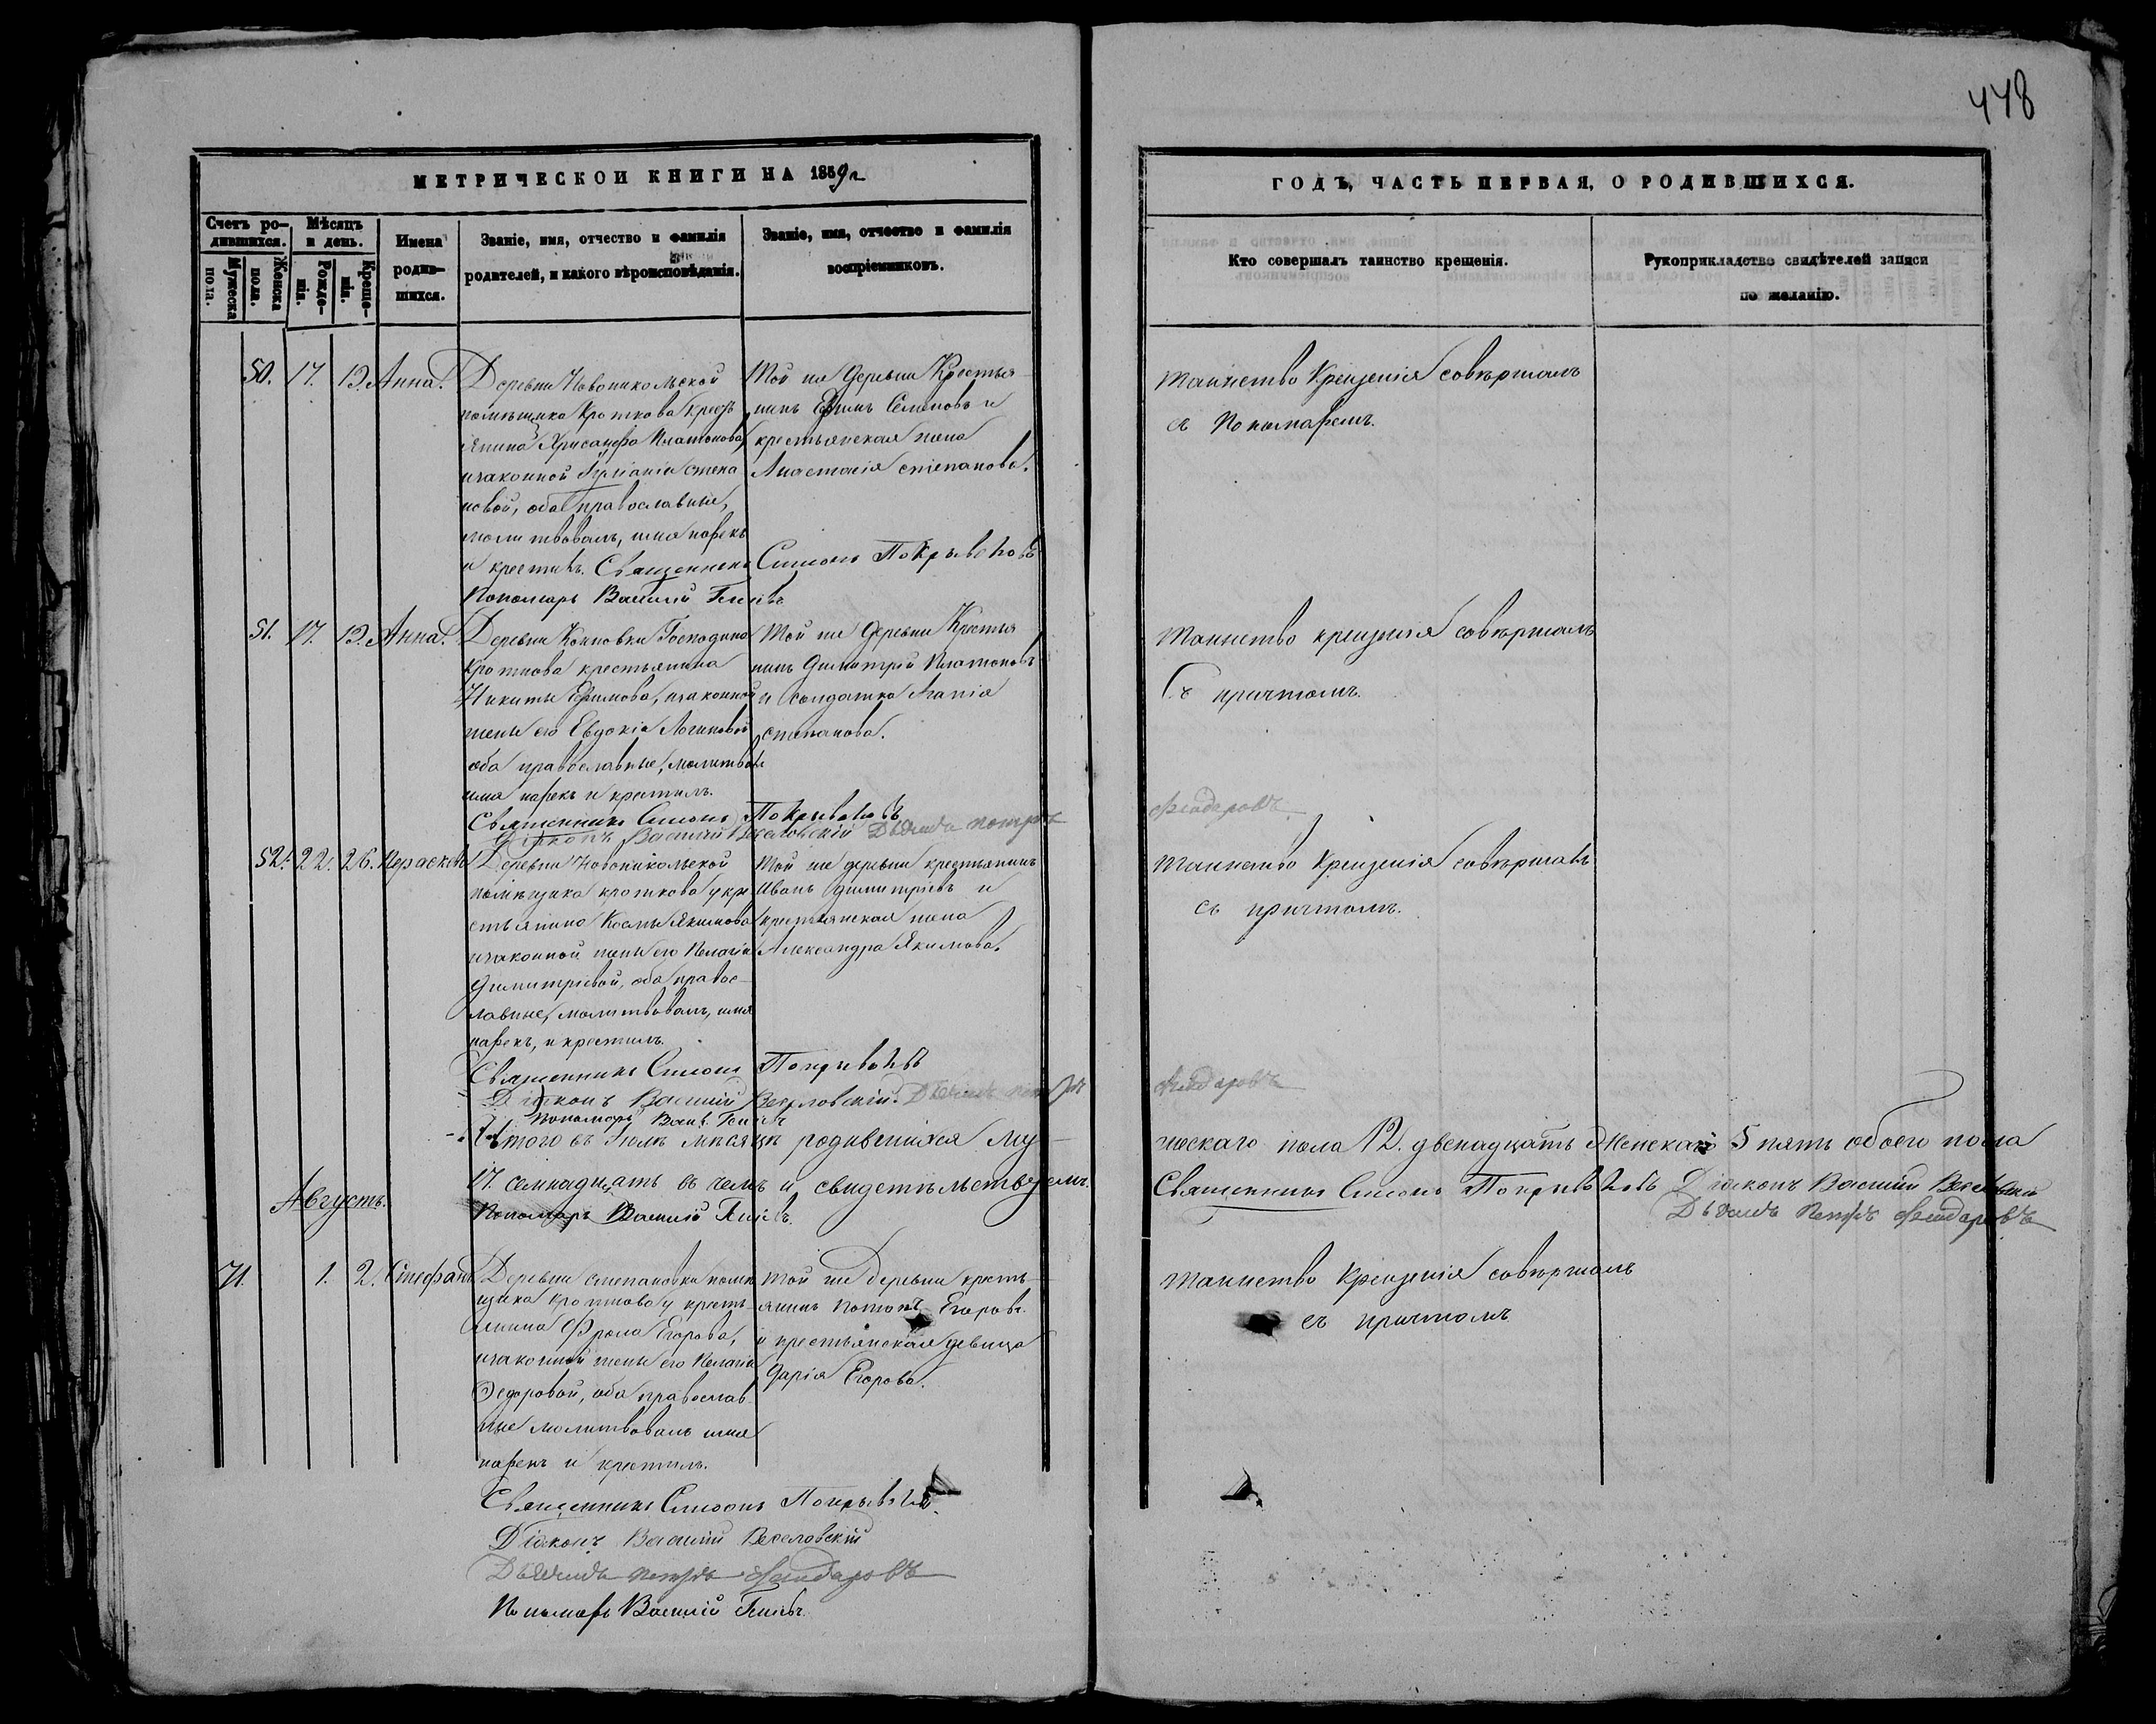 448
МЕТРИЧЕСКОЙ КНИГИ НА 1859 г
ГОДЪ, ЧАСТЬ ПЕРВАЯ, О РОДИВШИХСЯ.
Счетъ родившихся.
Мужеска пола.
Женска пола.
Мѣсяцъ и день.
Рожденія.
Крещенія.
Имена родившихся.
Званіе, имя, отчество и фамилія
родителей, и какого вѣроисповѣданія.
Званіе, имя, отчество и фамилія
воспріемниковъ.
Кто совершалъ таинство крещенія.
Рукоприкладство свидѣтелей записи
по желанію.
50. 17. 19. Анна.
Деревни Новоникольской
помѣщика Кроткова крест
янина Хрисанфа Платонова,
изаконной степа
новой, оба православные,
молитвовалъ, имя нарекъ
и крестилъ. Священникъ Симонъ Покрывсковъ
Пономарь Василий
Той же деревни Крестья
нинъ Ефимъ Семеновъ и
крестьянская жена
Анастасія степанова.
таинство Крещенія совершалъ
съ Пономаремъ.
51. 17. 19. Анна.
Деревни Господина
Кроткова крестьянина
Никиты Ефимова, изаконной
жены его Евдокіи Логиновой
оба православные, молитвовалъ
имя нарекъ и крестилъ.
Священникъ Симонъ
Діаконъ Василій Веселовскій Дьячекъ петръ
Той же деревни Крестья
нинъ Димитрий Платоновъ
и солдатка Агапія
степанова.
таинство крещенія совершалъ
Съ причтомъ.
52. 22. 26. Параскева
Деревни Новоникольской
помѣщика кроткова у кре
стьянина Космы Якимова
изаконной жены его Пелагіи
Димитріевой, оба правос
лавные, молитвовалъ, имя
нарекъ, и крестилъ.
Священникъ Симонъ
Діаконъ Василий Веселовскій. Дьячекъ петръ
Пономарь Васил.
Той же деревни крестьянинъ
Иванъ димитріевъ и
крестьянская жена
Александра Якимова.
таинство Крещенія совершалъ
съ причтомъ.
Итого въ Іюлѣ мѣсяцѣ родившихся му
жескаго пола 12. двенадцать Женскаго 5 пять обоего пола
17. семнадцать въ чемъ и свидетельствуемъ.
Священникъ Симонъ Діаконъ Василий Веселовскій
Пономарь Василий
Дьячекъ Петръ
Августъ.
71. 1. 2. Стефанъ
Деревни степановки помѣ
щика Кроткова у кресть
янина Фрола Егорова,
изаконной жены его Пелагіи
Федоровой, оба православ
ные молитвовалъ имя
нарекъ и крестилъ.
Той же деревни кресть
янинъ Егоровъ
и крестьянская девица
Дарія Егорова.
таинство Крещенія совершалъ
съ причтомъ
Священникъ Симонъ
Діаконъ Василий Веселовскій
Дьячекъ петръ
Пономарь Василий